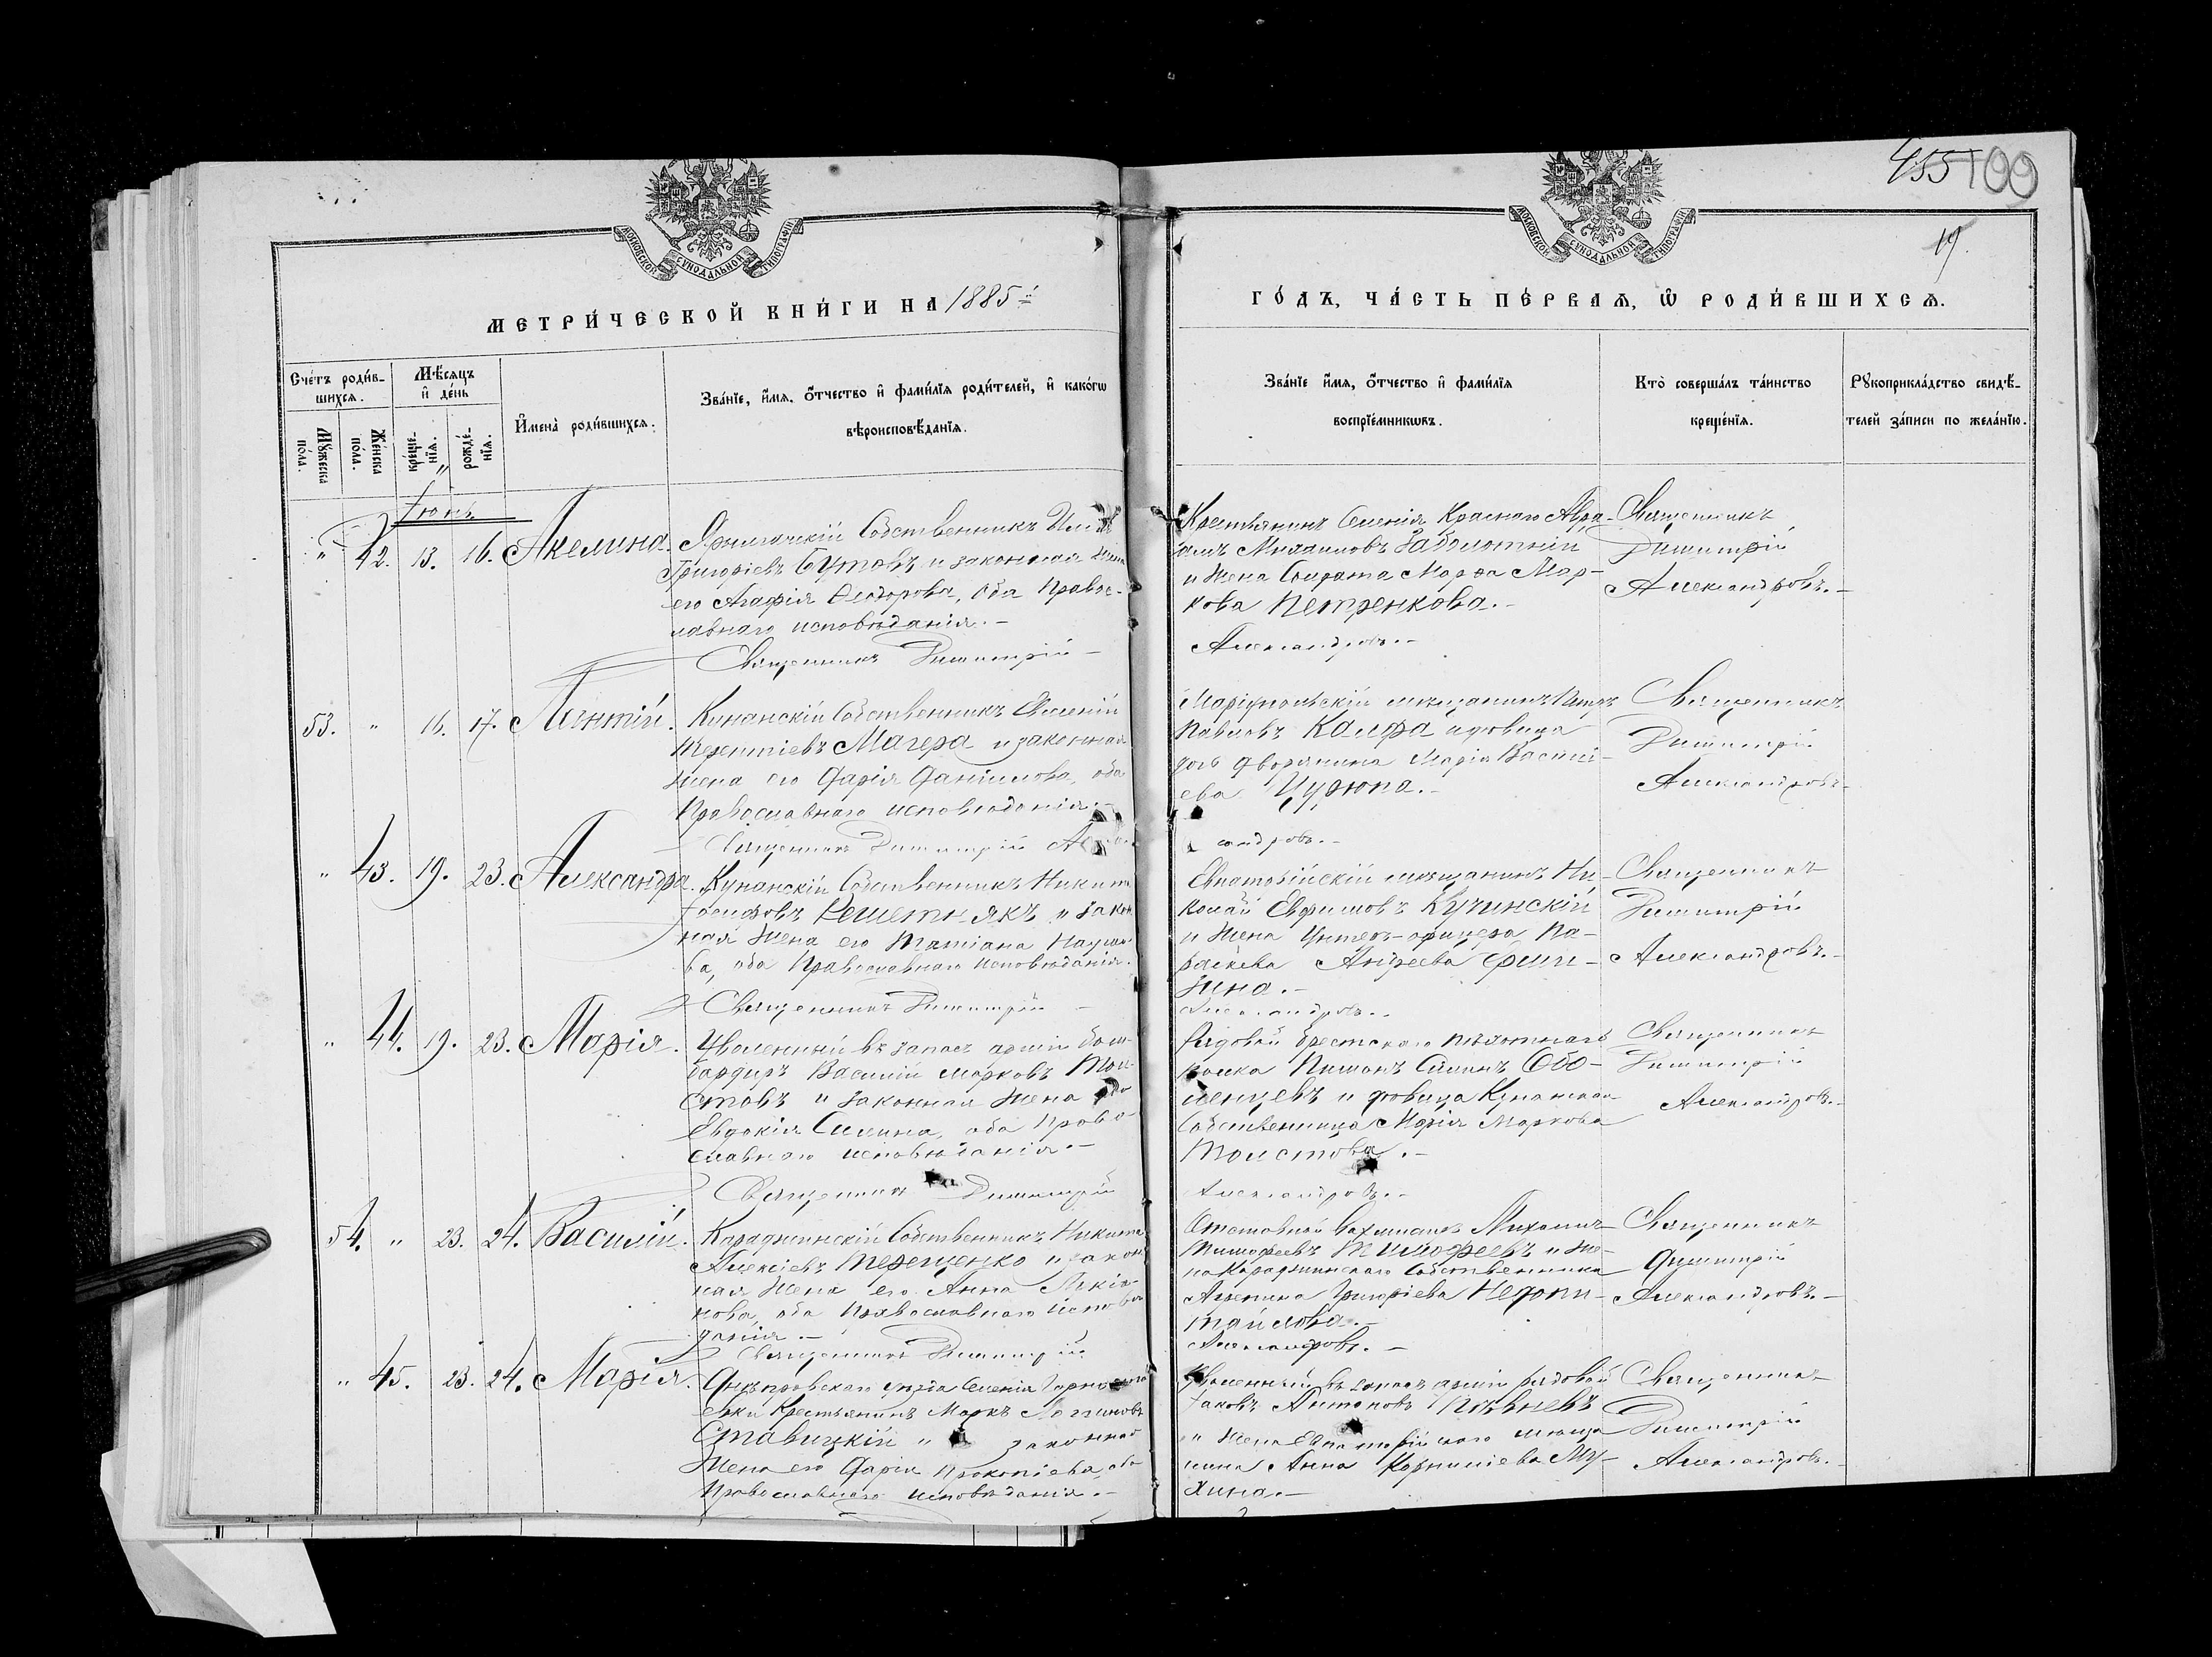 455 100
19.
МОСКОВСКОЙ СѴНОДАЛЬНОЙ ТИПОГРАФІИ
МОСКОВСКОЙ СѴНОДАЛЬНОЙ ТИПОГРАФІИ
МЕТРИ́ЧЕСКОЙ КНИ́ГИ НА 1885й
ГО́ДЪ, ЧА́СТЬ ПЕ́РВАѦ, Ѡ҆ РОДИ́ВШИХСѦ.
Сче́тъ роди́в-
шихсѧ.
Мѣ́сяцъ
и҆ де́нь
И҆мена̀ роди́вшихсѧ.
Зва́нїе, и҆́мѧ, ѻ҆́тчество и҆ фами́лїѧ роди́телей, и҆ како́гѡ
вѣроисповѣ́данїѧ.
Мꙋ́жеска по́ла.
Же́нска по́ла.
креще́-нїѧ.
рожде́-нїѧ.
Зва́нїе и҆́мѧ, ѻ҆́тчество и҆ фами́лїѧ
воспрїе́мникѡвъ.
Кто̀ соверша́лъ та́инство
креще́нїѧ.
Рꙋкоприкла́дство свидѣ́-
телей за́писи по жела́нїю.
Іюнь
" 42. 13. 16. Акелина.
Собственникъ
Григоріевъ Бутовъ и законная жена
его Агафія Ѳеодорова, оба Правос-
лавнаго исповѣданія.-
Священникъ Димитрій -
Крестьянинъ Селенія Краснаго Авра-
амъ Заболотній
и жена Солдата Марѳа Мар-
кова Петренкова.-
Александровъ.-
Священникъ
Димитрій
Александровъ.-
53. " 16. 17. Леонтій.
Кунанскій Собственникъ Евменій
Терентіевъ Магера и законная
жена его Дарія Даніилова, оба
Православнаго исповѣданія.-
Священникъ Димитрій
Маріупольскій мѣщанинъ Петръ
Павловъ Калфа и вдовица
дворянина Марія Васи-
ева Цурюпа.-
сандровъ.-
Священникъ
Димитрій
Александровъ-
" 43. 19. 23. Александра.
Кунанскій Собственникъ Никита
Іосифовъ Решетнякъ и закон
ная жена его Татіана Наумо
ва, оба Православнаго исповѣданія.
Священникъ Димитрій -
Евпаторійскій мѣщанинъ Ни-
колай Евфимовъ Кучинскій
и жена Унтеръ-офицера Па-
раскева Андреева
зина.-
Александровъ.-
Священникъ
Димитрій
Александровъ.-
" 44. 19. 23. Марія.
Уволенный въ запасъ арміи бом-
бардиръ Василій Марковъ Тол
стовъ и законная жена его
Евдокія Силина, оба Право
славнаго исповѣданія.-
Священникъ Димитрій
Рядовой Брестскаго пѣхотнаго
полка Пименъ Силинъ Обо-
ленцевъ и вдовица Кунанская
Собственница Марія Маркова
Толстова.-
Александровъ.-
Священникъ
Димитрій
Александровъ.-
54. " 23. 24. Василій.
Караджинскій Собственникъ Никита
Алексіевъ Терещенко и закон
ная жена его Анна Лукіа-
нова, оба Православнаго исповѣ
данія.-
Священникъ Димитрій
Отставной Вахмистръ Михаилъ
Тимофеевъ Тимофеевъ и же-
на Караджинскаго Собственника
Агрепина Григоріева Недопи-
тайлова.-
Александровъ.-
Священникъ
Димитрій
Александровъ.-
" 45. 23. 24. Марія.
Днѣпровскаго уѣзда Селенія
евки Крестьянинъ Маркъ Логиновъ
Ставицкій и законная
жена его Дарія Прокопіева, оба
Православнаго исповѣданія.-
Уволенный въ запасъ арміи рядовой
Іаковъ Антоновъ Пѣвневъ
и жена Евпаторійскаго мѣща
нина Анна Корниліева Му-
хина.-
Священникъ
Димитрій
Александровъ.-